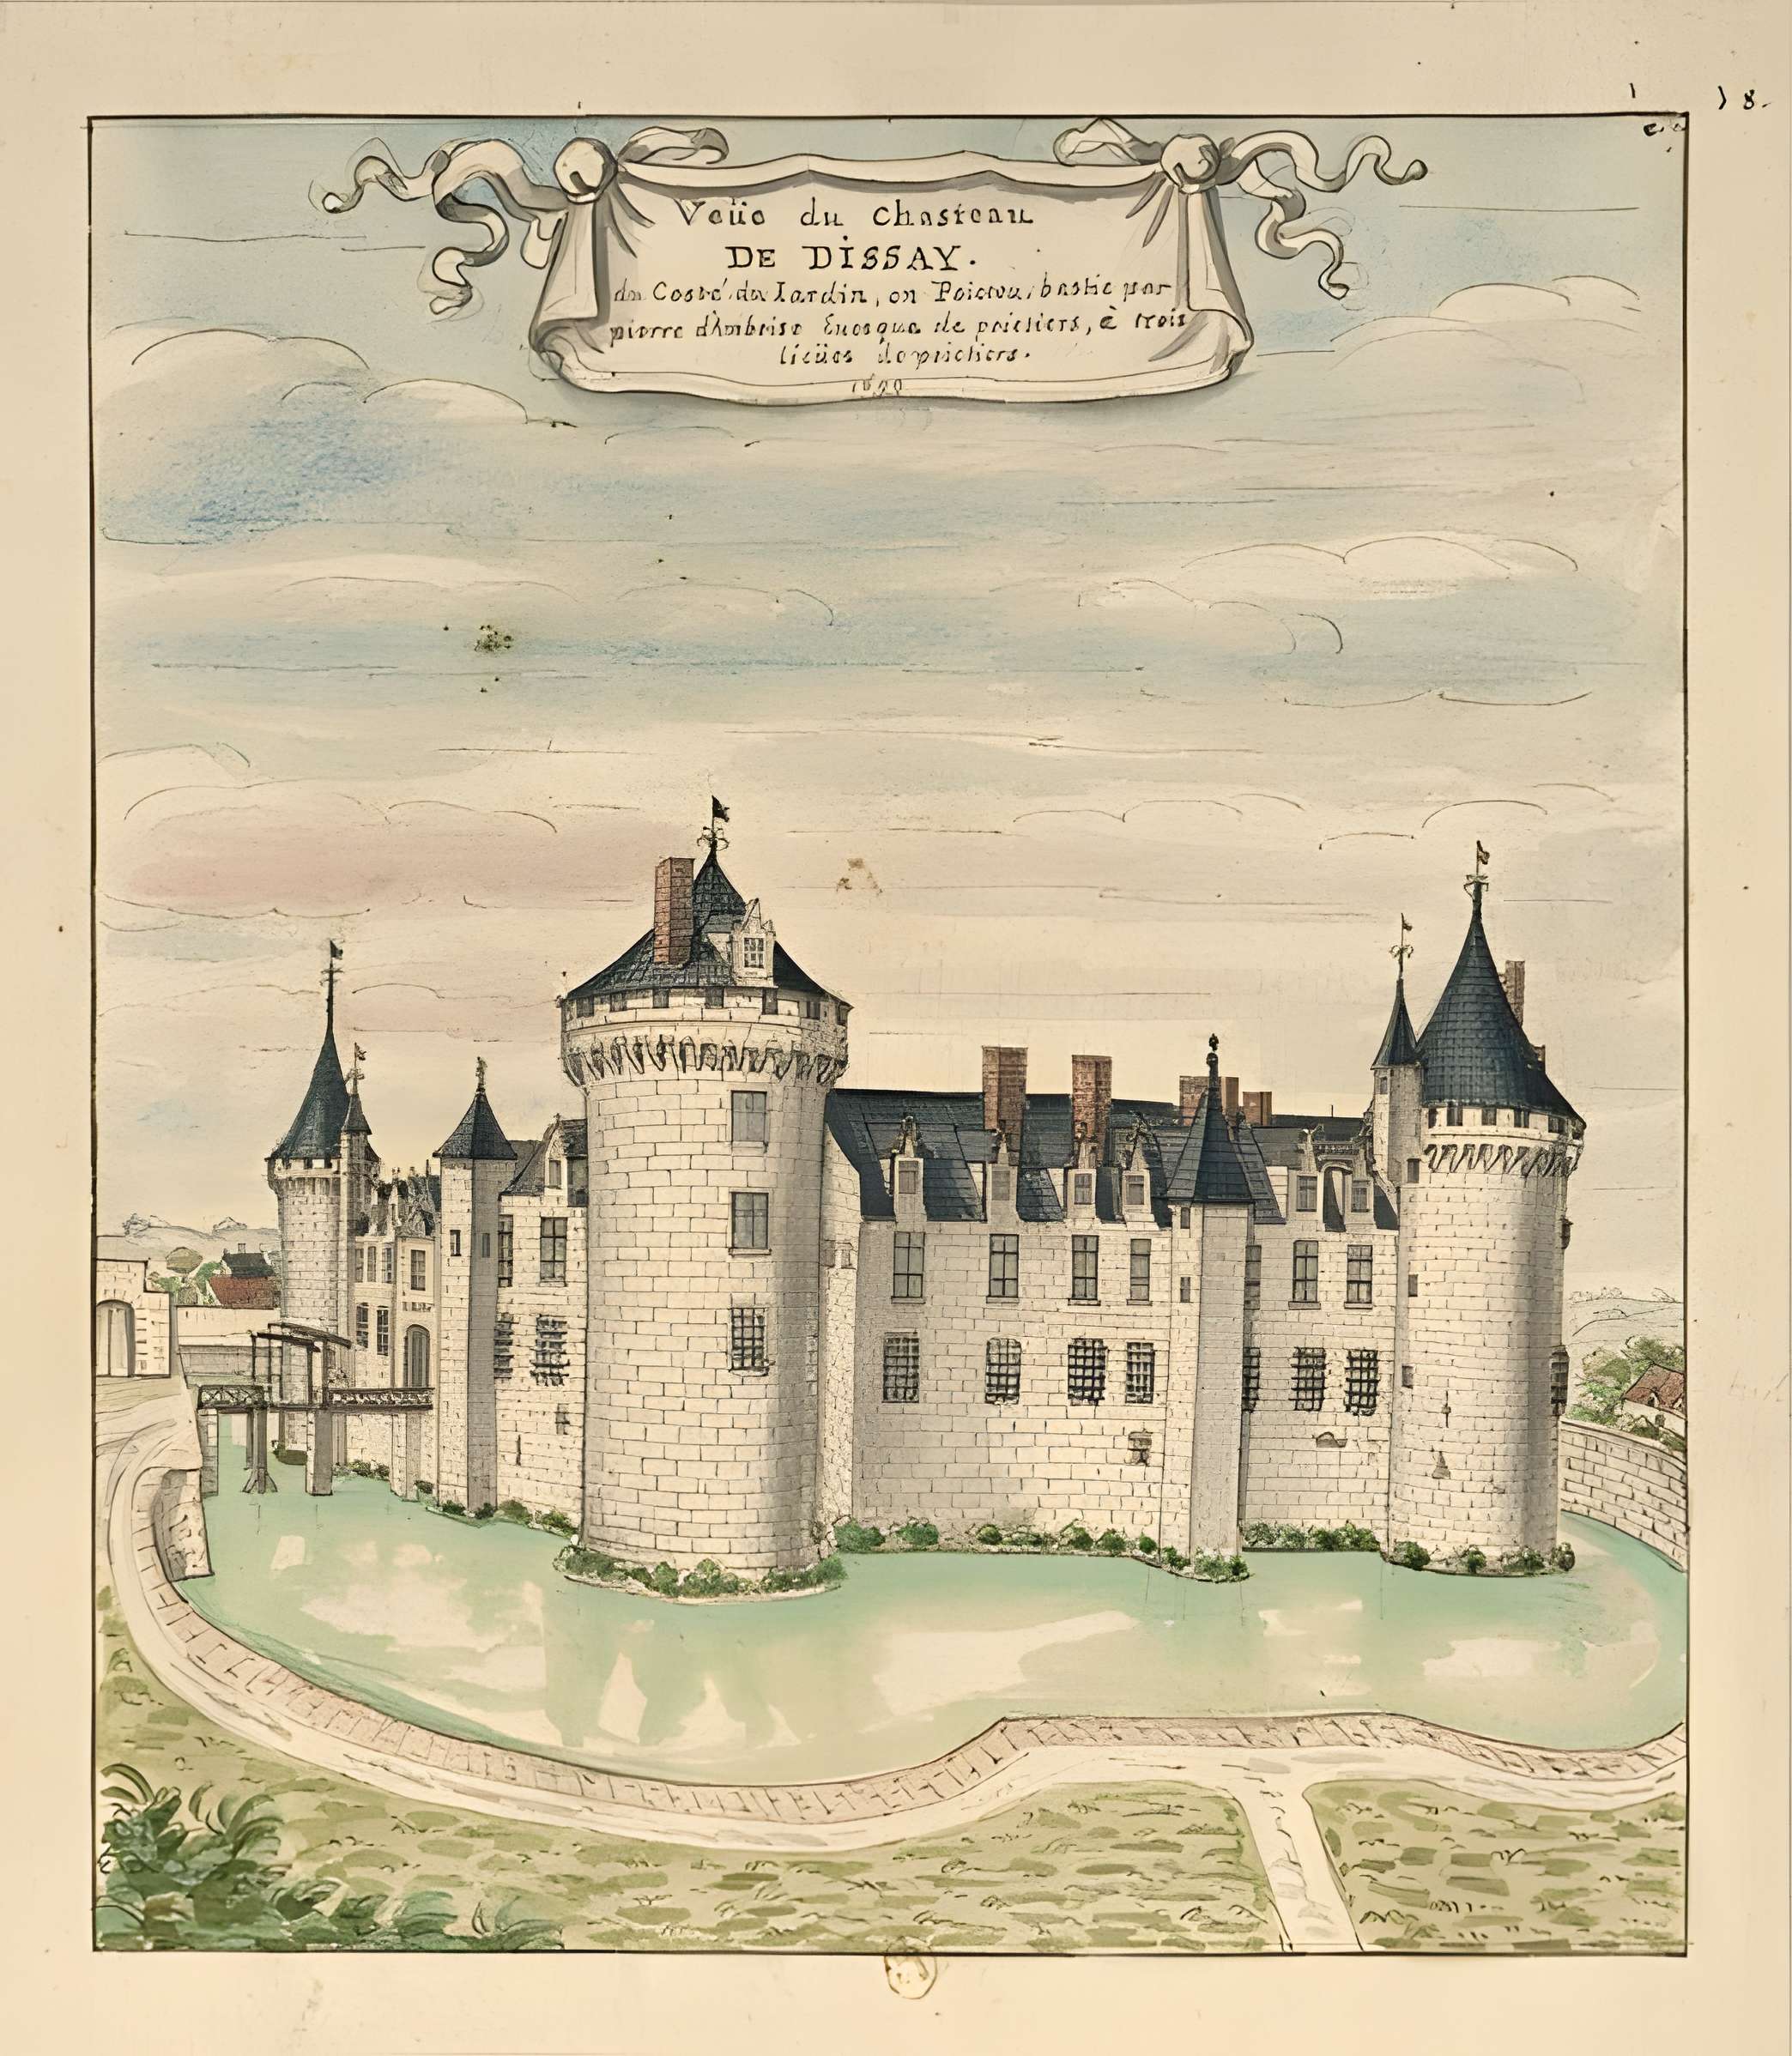 8.
Veüe du Chasteau
DE DISSAY.
du Costé du Iardin, en Poictou, bastie par
pierre d'Amboise Euesque de poictiers, à trois
lieües de poictiers.